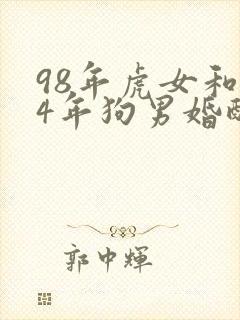 98年虎女和
4年狗男婚
郭中輝